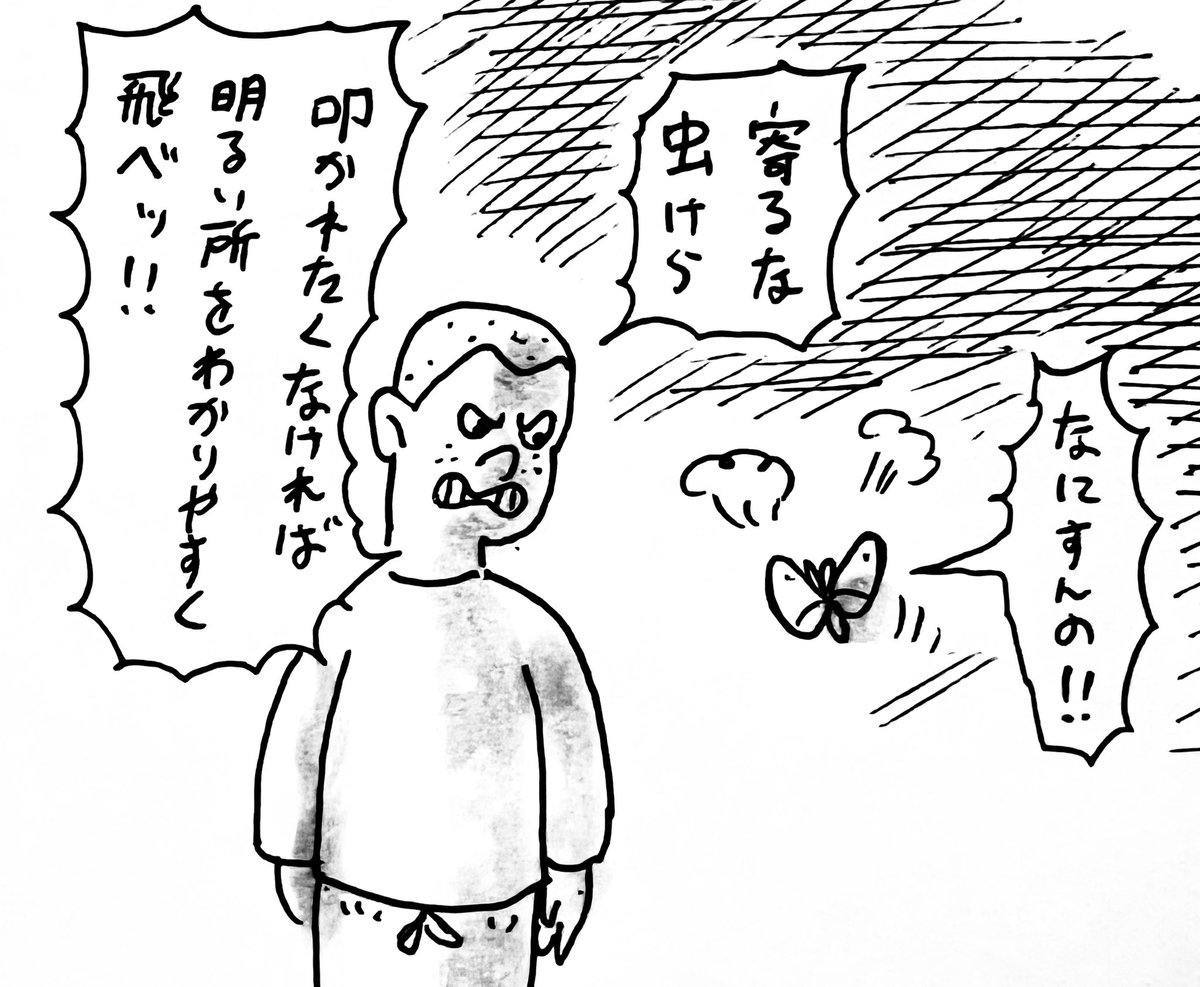 寄るな
虫けら
なにすんの!!
叩かれたくなければ
明るい所をわかりやすく
飛べッ!!